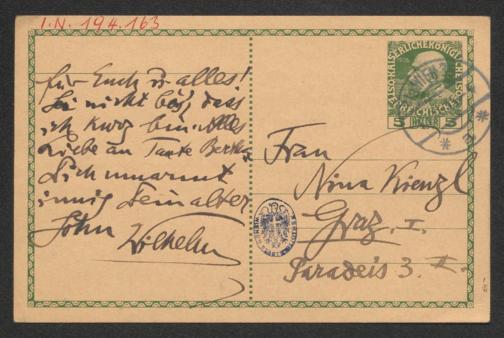 I.N. 194.163
für Euch u. alles!
Sei nicht bös, dass
ich kurz bin. Alles
Liebe an Tante Bertha
Dich umarmt
innig Dein alter
Sohn Wilhelm
5 HELLER 5
Frau
Nina Kienzl
Graz. I.
Paradeis 3. II.